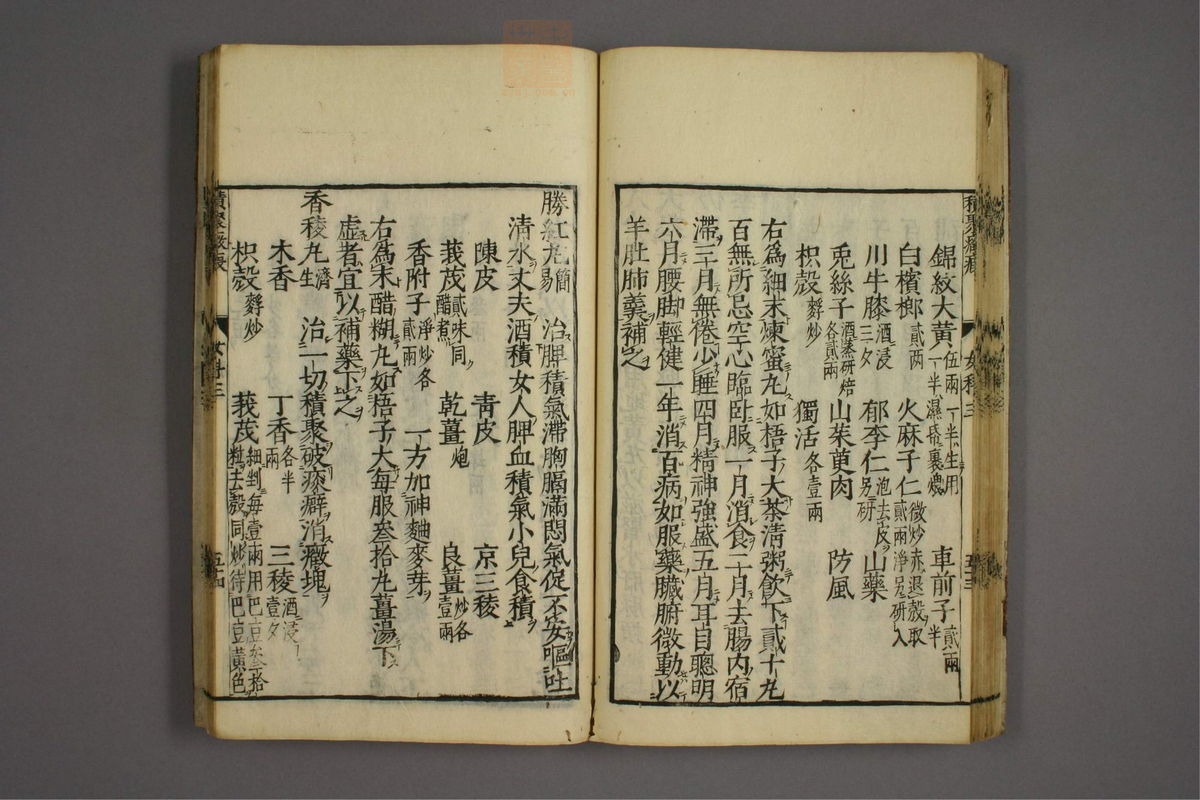 錦紋大黃伍兩一半生用一半濕昏裹煨 車前子貳兩半
白檳榔貳两 火麻子仁微炒赤退殼取貳兩淨另研入
川牛膝酒浸三夕 郁李仁泡去皮另研 山藥
兎絲子酒蒸研焙各貳兩 山茱萸肉 防風
枳殼麩炒 獨活各壹兩
右爲細末煉蜜丸如梧子大茶清粥飲下貳十丸
百無所忌空心臨卧服一月消食二月去腸内宿
滯三月無倦少睡四月精神強盛五月耳目聰明
六月腰脚輕健一年消百病如服藥臟腑微動以
羊肚肺羹補之
女科三
勝紅丸簡易 治脾積氣滯胸膈滿悶氣促不安嘔吐
清水丈夫酒積女人脾血積氣小兒食積
陳皮 青皮 京三稜
莪茂貳味同醋煮 乾薑炮 良薑炒各壹兩
香附子淨炒各貳兩 一方加神麯麥芽
右爲末醋糊丸如梧子大每服叄拾丸薑湯下
虚者宜以補藥下之
香稜丸濟生 治一切積聚破痰癖消癥塊
木香 丁香各半兩 三稜酒浸壹夕
枳殼麩炒 莪茂細剉每壹兩用巴豆叄拾粒去殼同炒待巴豆黄色
女科三